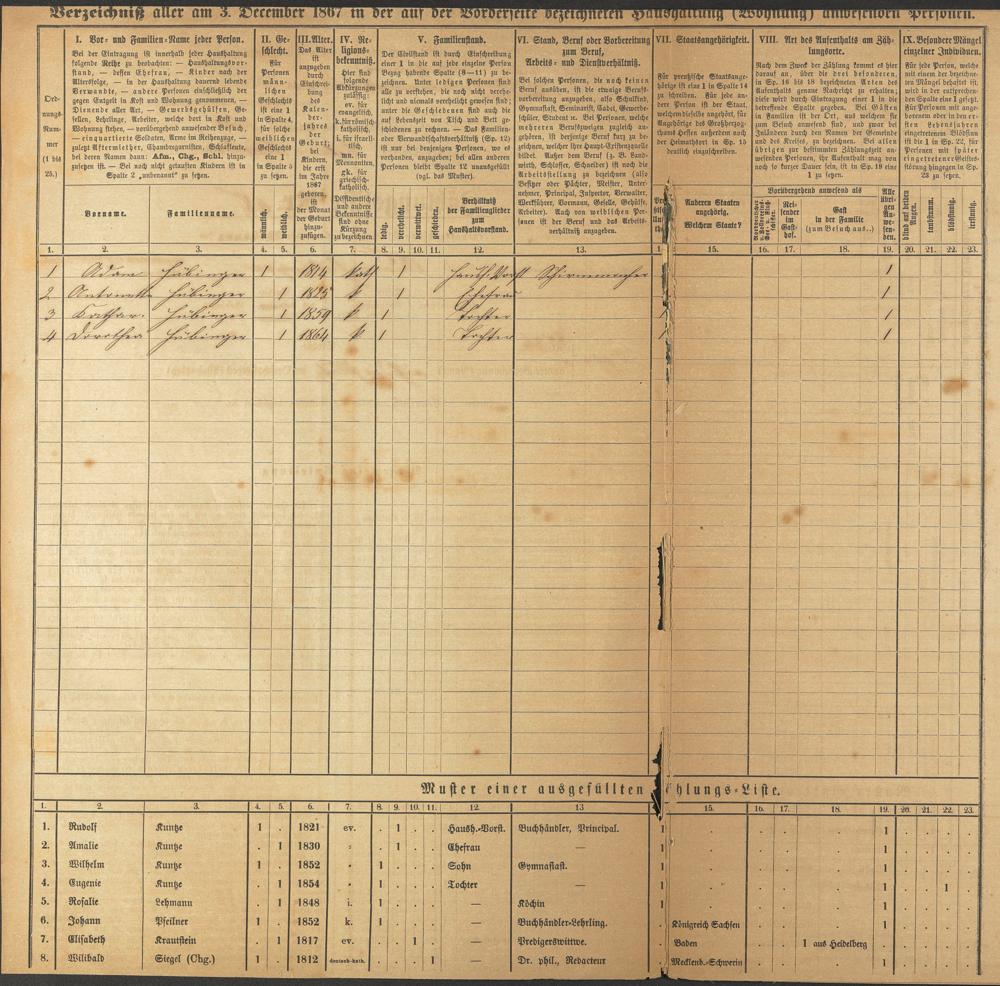 Verzeichniß aller am 3. December 1867 in der auf der Vorderseite bezeichneten Haushaltung (Wohnung) anwesenden Personen.
Ord-
nungs-
Num-
mer
(1 bis
25.)
I. Vor- und Familien-Name jeder Person.
Bei der Eintragung ist innerhalb jeder Haushaltung
folgende Reihe zu beobachten: — Haushaltungsvor-
stand, — dessen Ehefrau, — Kinder nach der
Altersfolge, — in der Haushaltung dauernd lebende
Verwandte, — andere Personen einschließlich der
gegen Entgelt in Kost und Wohnung genommenen, —
Dienende aller Art, — Gewerksgehülfen, Ge-
sellen, Lehrlinge, Arbeiter, welche dort in Kost und
Wohnung stehen, — vorübergehend anwesender Besuch,
— einquartierte Soldaten, Arme im Reihenzuge, —
zuletzt Aftermiether, Chambregarnisten, Schlafleute,
bei deren Namen dann: Afm., Chg., Schl. hinzu-
zusetzen ist. — Bei noch nicht getauften Kindern ist in
Spalte 2 „unbenannt" zu setzen.
Vorname. Familienname.
II. Ge-
schlecht.
Für
Personen
män-
lichen
Geschlechts
ist eine 1
in Spalte 4,
für solche
weiblichen
Geschlechts
eine 1
in Spalte 5
zu setzen.
männlich. weiblich.
III. Alter.
Das Alter
ist
anzugeben
durch
Einschrei-
bung
des
Kalen-
der-
jahres
der
Geburt;
bei
Kindern,
die erst
im Jahre
1867
geboren,
ist
der Monat
der Geburt
hinzu-
zufügen.
IV. Re-
ligions-
bekenntniß.
Hier sind
folgende
Abkürzungen
zulässig:
ev. für
evangelisch,
k. für römisch-
katholisch,
i. für israeli-
tisch,
mn. für
Mennoniten,
gk. für
griechisch-
katholisch.
Dissidentische
und andere
Bekenntnisse
sind ohne
Kürzung
zu bezeichnen
V. Familienstand.
Der Civilstand ist durch Einschreibung
einer 1 in die auf jede einzelne Person
Bezug habende Spalte (8—11) zu be-
zeichnen. Unter ledigen Personen sind
alle zu verstehen, die noch nicht verehe-
licht und niemals verehelicht gewesen sind;
unter die Geschiedenen sind auch die
zeitlebens von Tisch und Bett ge-
schiedenen zu rechnen. — Das Familien-
oder Verwandtschaftsverhältniß (Sp. 12)
ist nur bei denjenigen Personen, wo es
vorhanden, anzugeben; bei allen anderen
Personen bleibt Spalte 12 unausgefüllt
(vgl. das Muster).
ledig. verehelicht. verwitwet. geschieden.
Verhältniß
der Familienglieder
zum
Haushaltsvorstand.
VI. Stand, Beruf oder Vorbereitung
zum Beruf,
Arbeits- und Dienstverhältniß.
Bei solchen Personen, die noch keinen
Beruf ausüben, ist die etwaige Berufs-
vorbereitung anzugeben, also Schulkind,
Gymnasiast, Seminarist, Cadet, Gewerbe-
schüler, Student u. Bei Personen, welche
mehreren Berufszweigen zugleich an-
gehören, ist derjenige Beruf kurz zu be-
zeichnen, welcher ihre Haupt-Existenzquelle
bildet. Außer dem Beruf (z. B. Land-
wirth, Schlosser, Schneider) ist noch die
Arbeitsstellung zu bezeichnen (also
Besitzer oder Pächter, Meister, Unter-
nehmer, Principal, Inspector, Verwalter,
Werkführer, Vormann, Geselle, Gehülfe,
Arbeiter). Auch von weiblichen Per-
sonen ist der Beruf und das Arbeits-
verhältniß anzugeben.
VII. Staatsangehörigkeit.
Für preußische Staatsange-
hörige ist eine 1 in Spalte 14
zu schreiben. Für jede an-
dere Person ist der Staat,
welchem dieselbe angehört, für
Angehörige des Großherzog-
thums Hessen außerdem noch
der Heimathsort in Sp. 15
deutlich einzuschreiben.
Anderen Staaten
angehörig.
Welchem Staate?
VIII. Art des Aufenthalts am Zäh-
lungsorte.
Nach dem Zweck der Zählung kommt es hier
darauf an, über die drei besonderen,
in Sp. 16 bis 18 bezeichneten Arten des
Aufenthalts genaue Nachricht zu erhalten;
dies wird durch Eintragung einer 1 in die
betreffende Spalte gegeben. Bei Gästen
in Familien ist der Ort, aus welchem sie
zum Besuch anwesend sind, und zwar bei
Inländern durch den Namen der Gemeinde
und des Kreises, zu bezeichnen. Bei allen
übrigen zur bestimmten Zählungszeit an-
wesenden Personen, ihr Aufenthalt mag von
noch so kurzer Dauer sein, ist in Sp. 19 eine
1 zu setzen.
Vorübergehend anwesend als
Rei-
sender
im
Gast-
hof.
Gast
in der Familie
(zum Besuch aus..)
Alle
übri-
gen
An-
we-
sen-
den.
IX. Besondere Mängel
einzelner Individuen.
Für jede Person, welche
mit einem der bezeichne-
ten Mängel behaftet ist,
wird in der entsprechen-
den Spalte eine 1 gesetzt.
blind auf beiden
Augen. taubstumm. blödsinnig. irrsinnig.
1. 2. 3. 4. 5. 6. 7. 8. 9. 10. 11. 12. 13. 15. 16. 17. 18. 19. 20. 21. 22. 23.
1 Adam Hübinger 1 1814 kath 1 Haush. Vorst Schirmmacher 1
2 Antonette Hübinger 1 1825 k 1 Ehefrau 1
3 Kathar. Hübinger 1 1859 k 1 Tochter 1
4 Dorothea Hübinger 1 1864 k 1 Tochter 1
Muster einer ausgefüllten hlungs-Liste.
1. 2. 3. 4. 5. 6. 7. 8. 9. 10. 11. 12. 13 15. 16. 17. 18. 19. 20. 21. 22. 23.
1. Rudolf Kuntze 1 . 1821 ev. . 1 . . Haush.-Vorst. Buchhändler, Principal. 1 . . . . 1 . . . .
2. Amalie Kuntze . 1 1830 " . 1 . . Ehefrau — 1 . . . . 1 . . . .
3. Wilhelm Kuntze 1 . 1852 " 1 . . . Sohn Gymnasiast. 1 . . . . 1 . . . .
4. Eugenie Kuntze . 1 1854 " 1 . . . Tochter — 1 . . . . 1 . . 1 .
5. Rosalie Lehmann . 1 1848 i. 1 . . . — Köchin 1 . . . . 1 . . . .
6. Johann Pfeilner 1 . 1852 k. 1 . . . — Buchhändler-Lehrling. Königreich Sachsen . . . 1 . . . .
7. Elisabeth Krautstein . 1 1817 ev. . . 1 . — Predigerswittwe. Baden . . 1 aus Heidelberg . . . . .
8. Wilibald Siegel (Chg.) 1 . 1812 deutsch-kath. . . . 1 — Dr. phil., Redacteur Mecklenb.-Schwerin . . . 1 . . . .